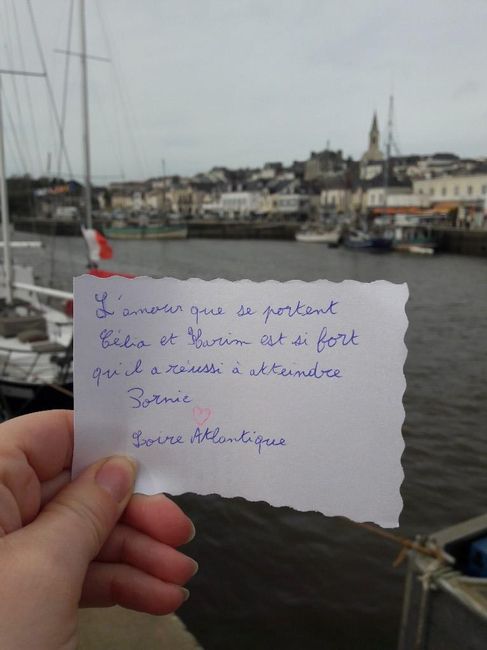 L'amour que se portent
Célia et Karim est si fort
qu'il a réussi à atteindre
Pornic
Loire Atlantique